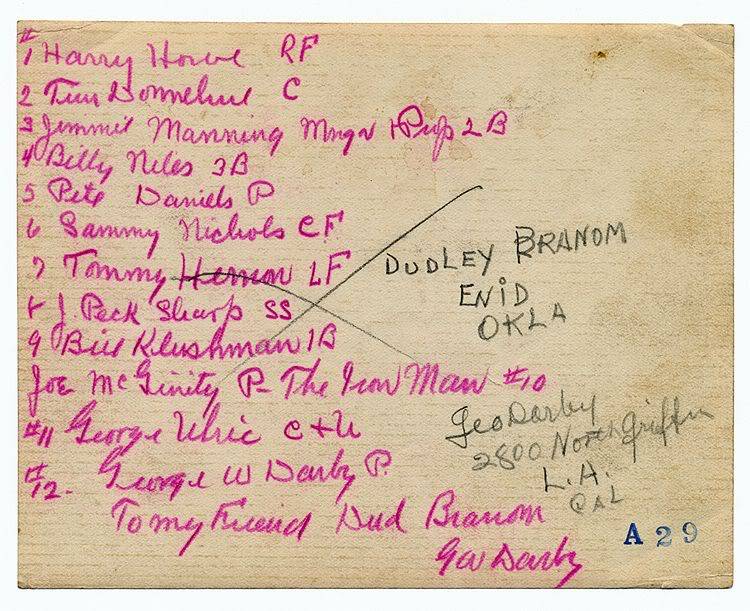 #
1 Harry Howe RF
2 Tim Donnehue C
3 Jimmie Manning Mngr + Prop 2B
4 Billy Niles 3B
5 Pete Daniels P
6 Sammy Nichols CF
7 Tommy Hernon LF
8 J. Peck Sharp SS
9 Bill Klushman 1B
Joe McGinity P- The Iron Man #10
#11 George Ulric C + U
#12. George W Darby P.
To my Friend Dud Branom
Geo Darby
DUDLEY BRANOM
ENID
OKLA
Geo Darby
2800 North Griffin
L.A.
CAL
A29